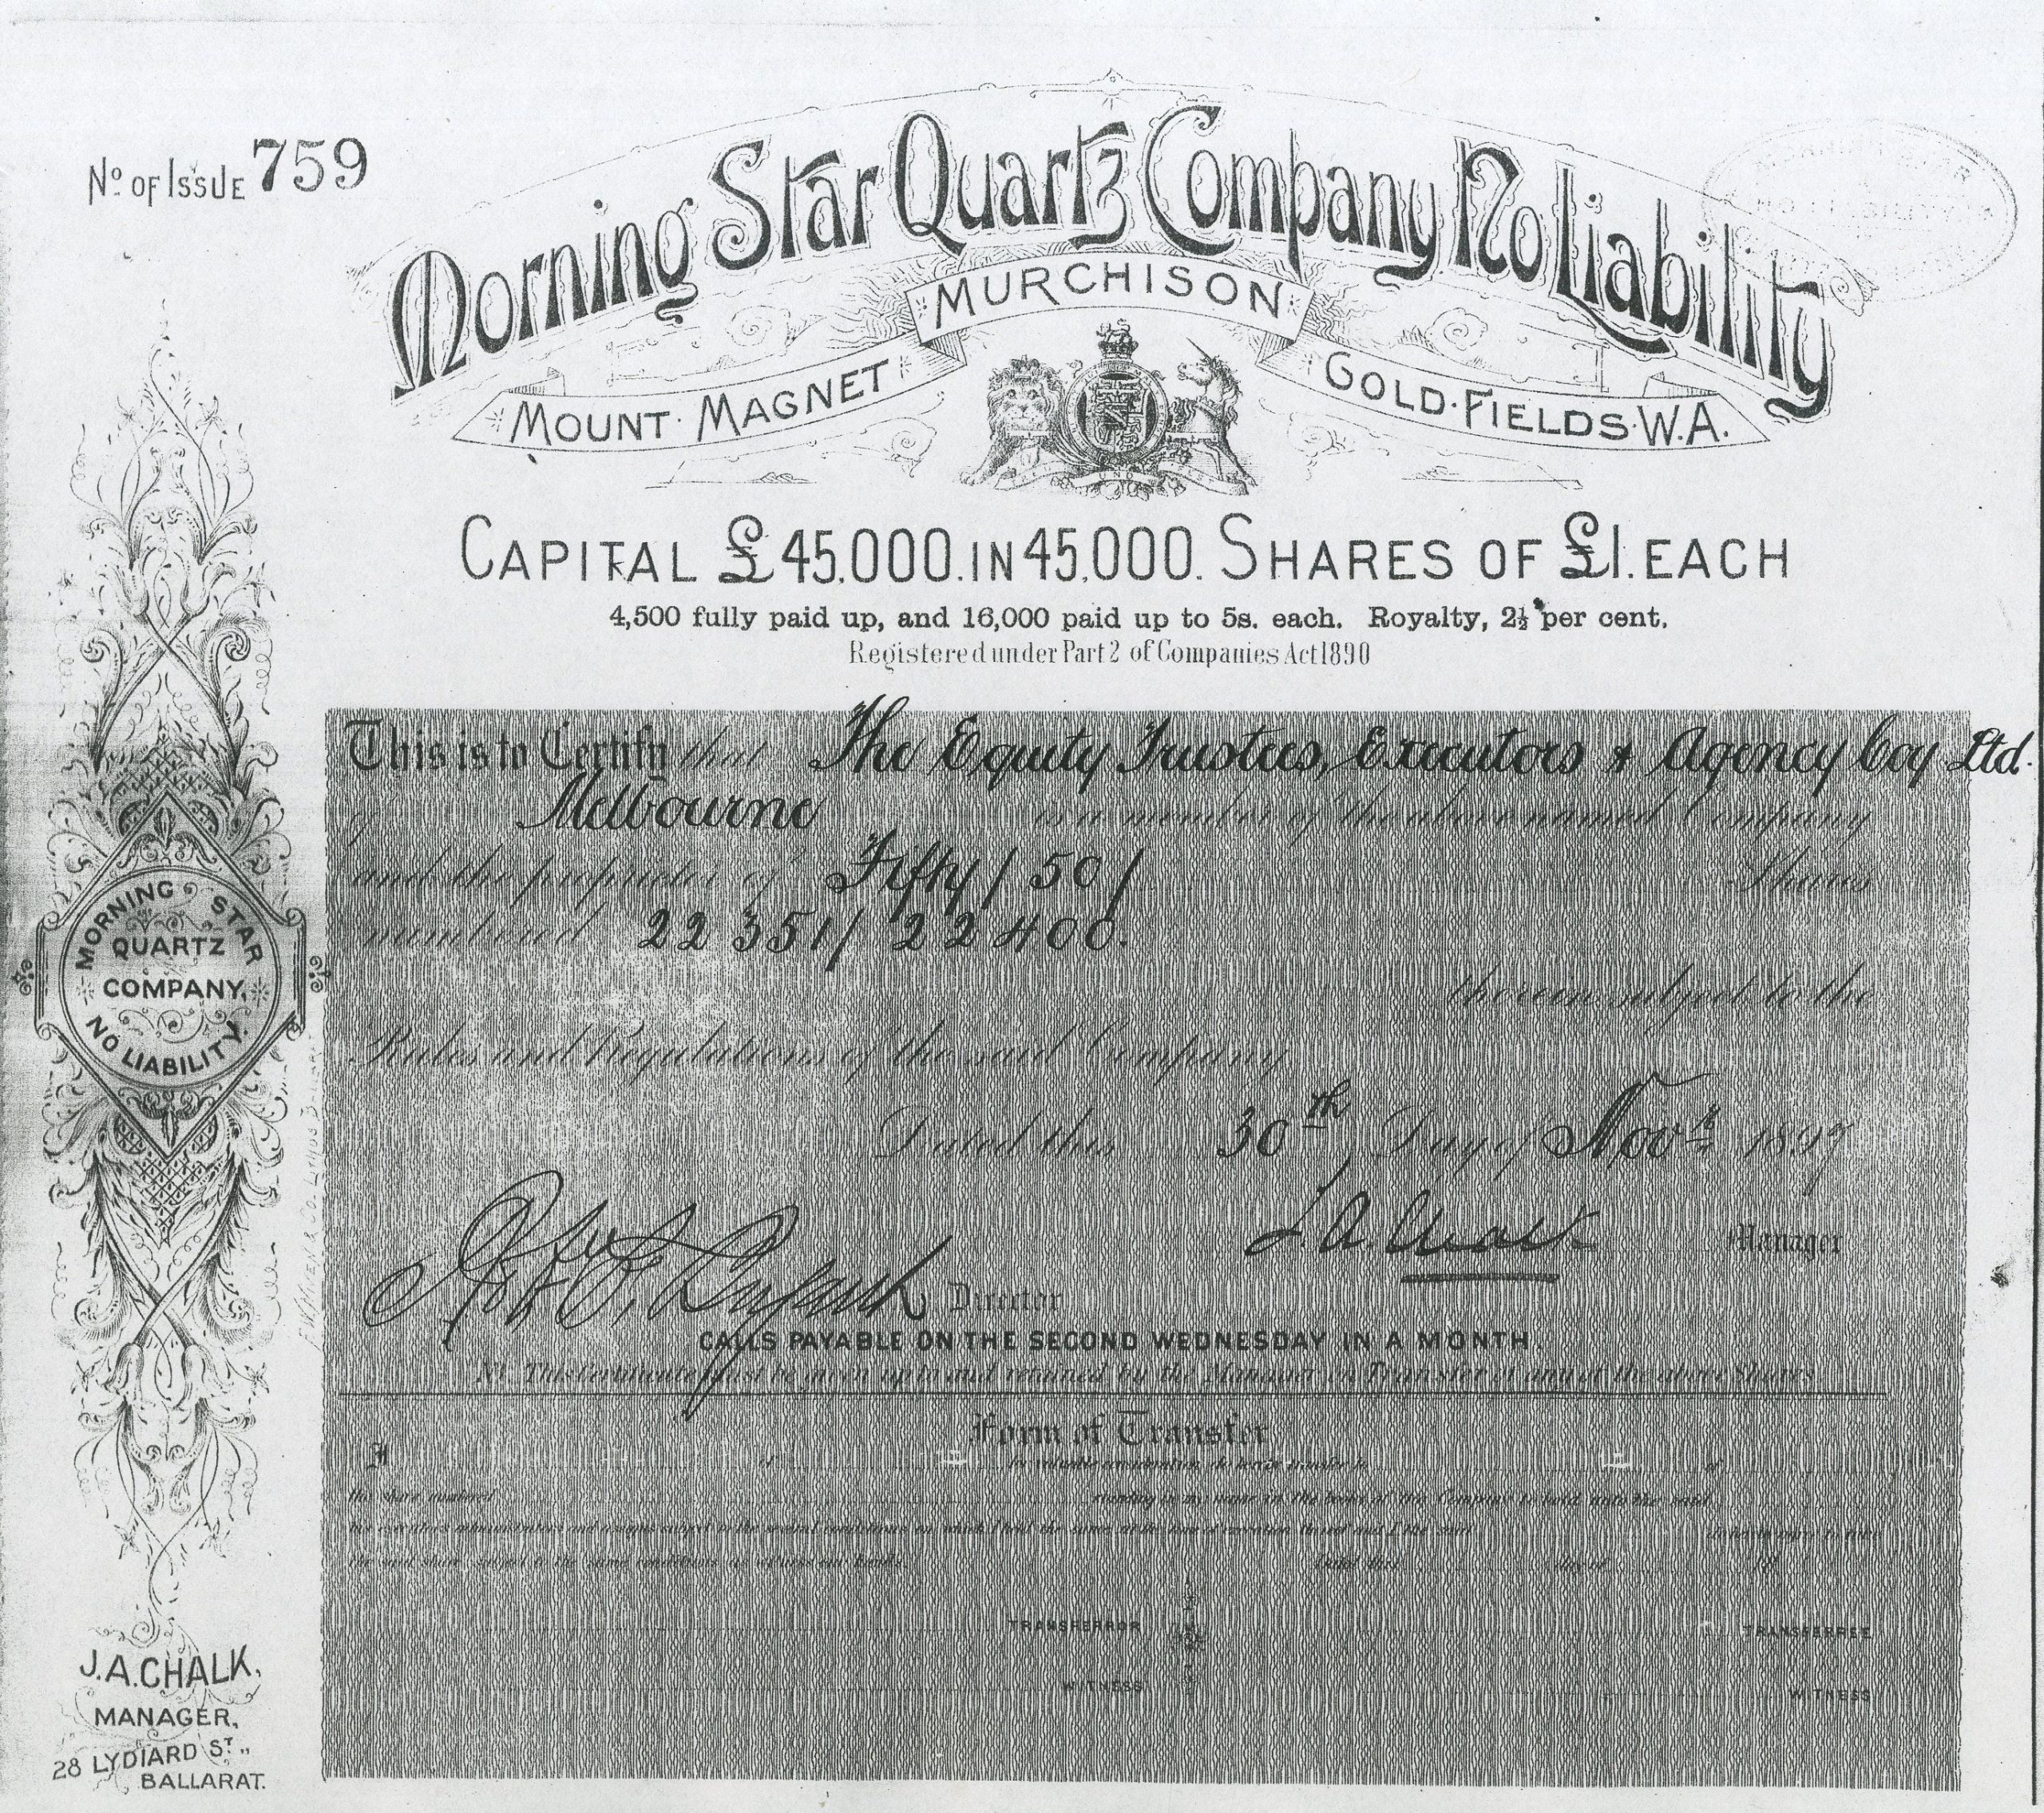 No. OF ISSUE 759
Morning Star Quartz Company No Liability
MOUNT MAGNET MURCHISON GOLD FIELDS W.A.
CAPITAL £45,000. IN 45,000. SHARES OF £1. EACH
4,500 fully paid up, and 16,000 paid up to 5s. each. Royalty, 2½ per cent.
Registered under Part 2 of Companies Act 1890
This is to Certify that The Equity Trustees, Executors & Agency Coy Ltd.
of Melbourne is a member of the above named Company
and the proprietor of Fifty / 50 / Shares
numbered 22351 / 22400.
therein subject to the
Rules and Regulations of the said Company
Dated this 30th Day of Novr 1897
J. A. Chalk Manager
Director
CALLS PAYABLE ON THE SECOND WEDNESDAY IN A MONTH.
NB. This Certificate must be given up to and retained by the Manager on Transfer of any of the above Shares
Form of Transfer
I of for valuable consideration do hereby transfer to of
the share numbered standing in my name in the books of the Company to hold unto the said
the said share subject to the same conditions as witness our hands. Dated this day of 18
TRANSFERROR TRANSFERREE
WITNESS WITNESS
MORNING STAR
QUARTZ
COMPANY,
NO LIABILITY.
J. A. CHALK,
MANAGER,
28 LYDIARD ST.,
BALLARAT.